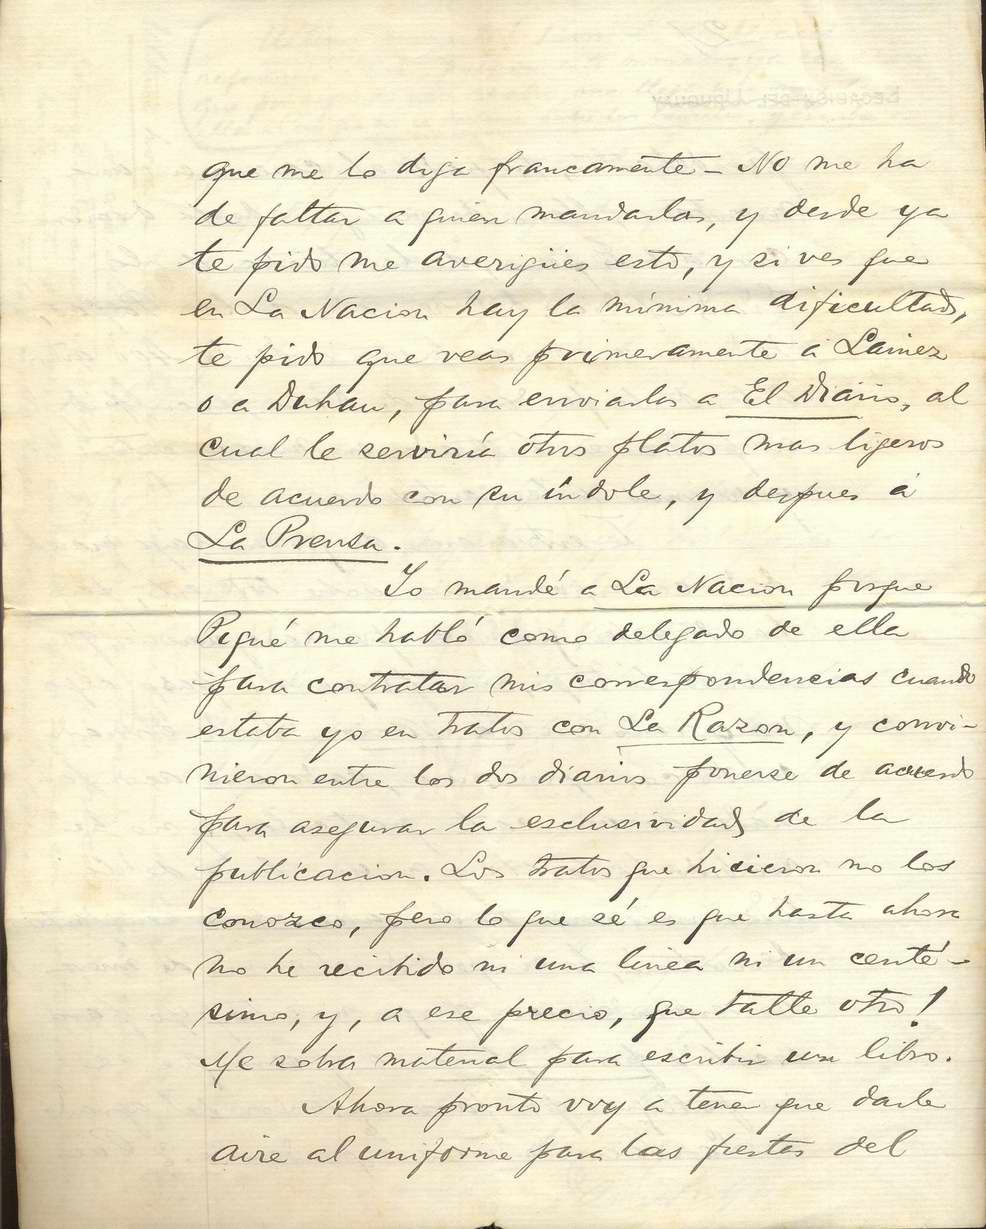 que me lo diga francamente – No me ha
de faltar a quien mandarlas, y desde ya
te pido me averigües esto, y si ves que
en La Nacion hay la mínima dificultad,
te pido que veas primeramente á Lainez
o a Duhau, para enviarlas a El Diario, al
cual le serviría otros platos mas ligeros
de acuerdo con su índole, y despues á
La Prensa.
Yo mandé a La Nacion porque
Piqué me habló como delegado de ella
para contratar mis correspondencias cuando
estaba yo en tratos con La Razon, y convi-
nieron entre los dos diarios ponerse de acuerdo
para asegurar la esclusividad de la
publicacion. Los tratos que hicieron no los
conozco, pero lo que sé es que hasta ahora
no he recibido ni una linea ni un centé-
simo, y, a ese precio, que talle otro!
Me sobra material para escribir un libro.
Ahora pronto voy a tener que darle
aire al uniforme para las fiestas del